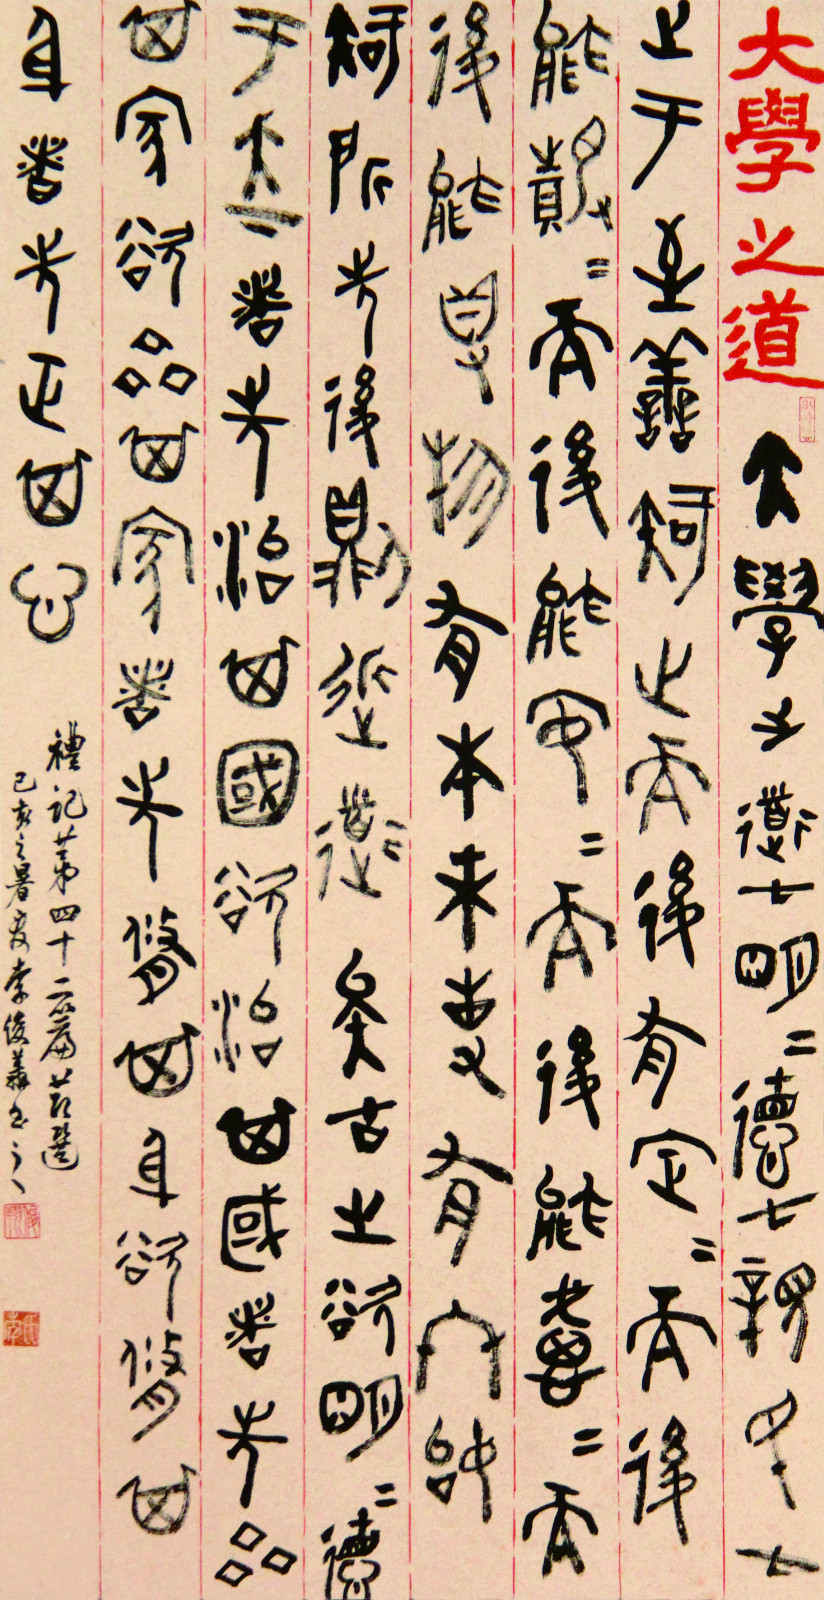 大學之道
大學之道在明=德在親民在
止于至善知止而後有定=而後
能靜=而後能安=而後能慮=而
後能得物有本末事有終始
知所先後則近道矣古之欲明=德
于天下者先治其國欲治其國者先齊
其家欲齊其家者先脩其身欲脩其
身者先正其心
禮記第四十二篇节選
己亥之暑夏李俊義书之